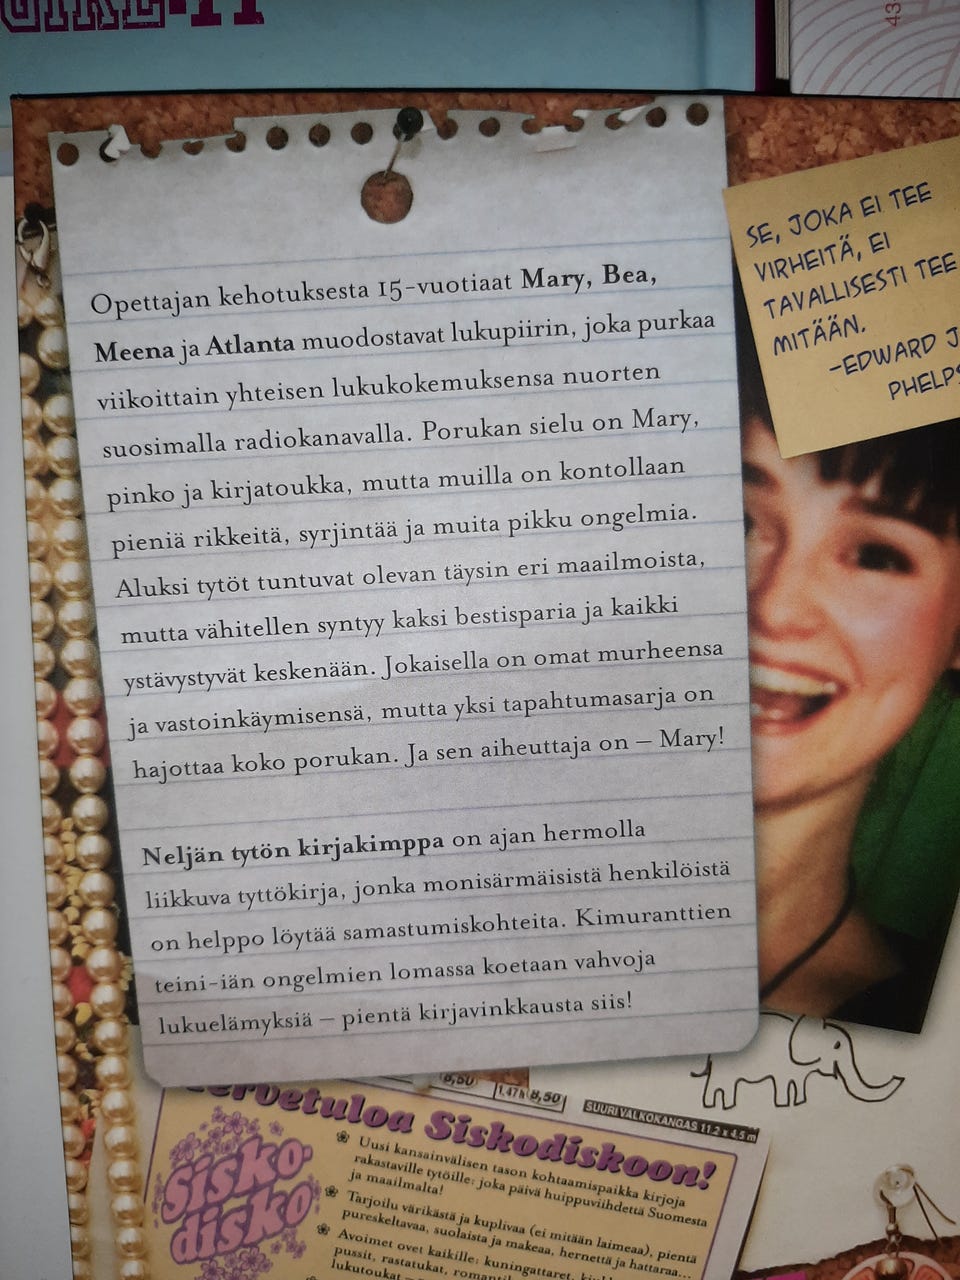 43
SE, JOKA EI TEE
VIRHEITÄ, EI
TAVALLISESTI TEE
MITÄÄN.
-EDWARD J
PHELPS
Opettajan kehotuksesta 15-vuotiaat Mary, Bea,
Meena ja Atlanta muodostavat lukupiirin, joka purkaa
viikoittain yhteisen lukukokemuksensa nuorten
suosimalla radiokanavalla. Porukan sielu on Mary,
pinko ja kirjatoukka, mutta muilla on kontollaan
pieniä rikkeitä, syrjintää ja muita pikku ongelmia.
Aluksi tytöt tuntuvat olevan täysin eri maailmoista,
mutta vähitellen syntyy kaksi bestisparia ja kaikki
ystävystyvät keskenään. Jokaisella on omat murheensa
ja vastoinkäymisensä, mutta yksi tapahtumasarja on
hajottaa koko porukan. Ja sen aiheuttaja on – Mary!
Neljän tytön kirjakimppa on ajan hermolla
liikkuva tyttökirja, jonka monisärmäisistä henkilöistä
on helppo löytää samastumiskohteita. Kimuranttien
teini-iän ongelmien lomassa koetaan vahvoja
lukuelämyksiä – pientä kirjavinkkausta siis!
8,50
1.47 h 8,50
SUURI VALKOKANGAS 11.2 x 4.5 m
Tervetuloa Siskodiskoon!
Sisko-
disko
Uusi kansainvälisen tason kohtaamispaikka kirjoja
rakastaville tytöille: joka päivä huippuviihdettä Suomesta
ja maailmalta!
Tarjoilu värikästä ja kuplivaa (ei mitään laimeaa), pientä
pureskeltavaa, suolaista ja makeaa, hernettä ja hattaraa...
Avoimet ovet kaikille: kuningattaret,
pussit, rastatukat,
lukutoukat